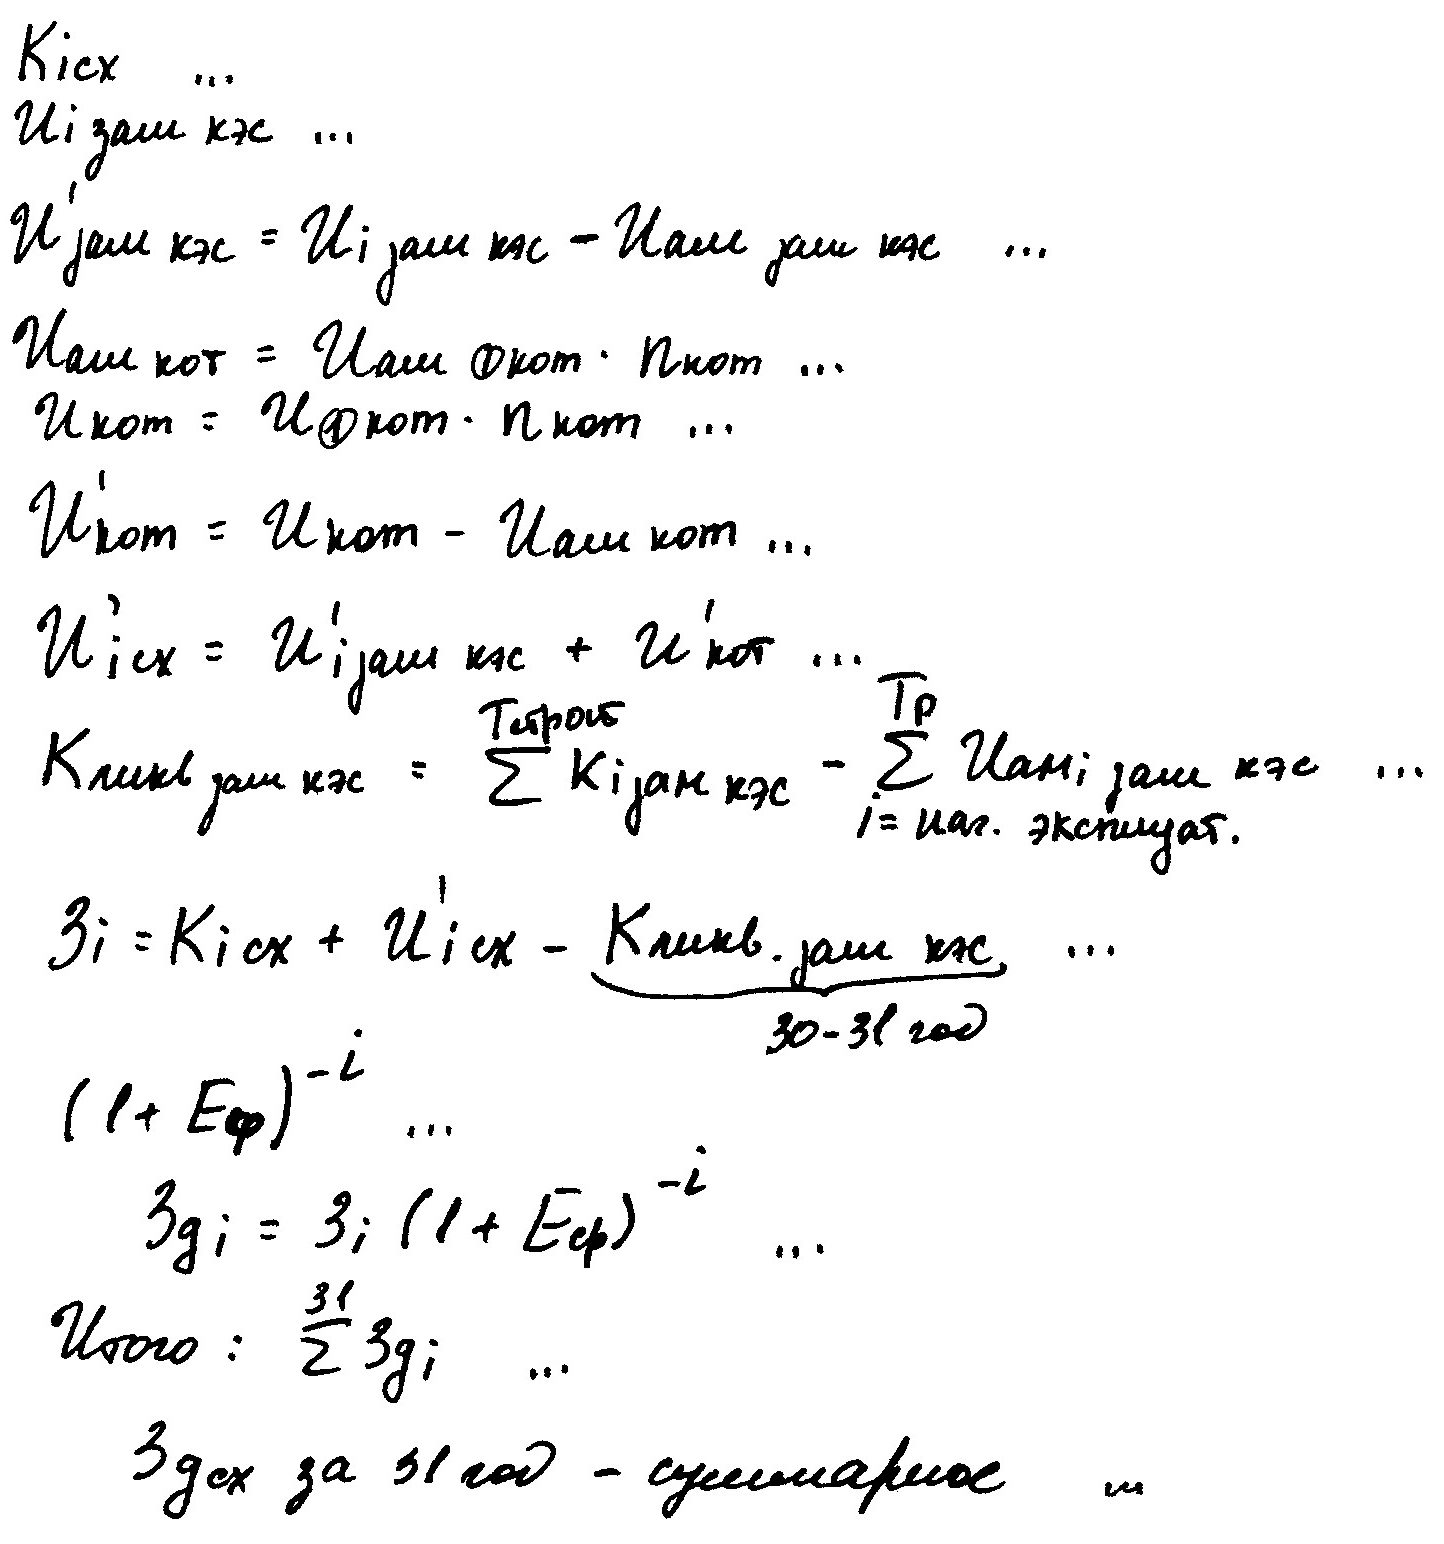 Кiсх ...
Иi зам кэс ...
И' зам кэс = Иi зам кэс - Иам зам кэс ...
Иам кот = Иам ф кот · n кот ...
И кот = И ф кот · n кот ...
И' кот = И кот - Иам кот ...
И'iсх = И'i зам кэс + И' кот ...
Tстроит Tр
Кликв зам кэс = ∑ Кi зам кэс - ∑ Иамi зам кэс ...
i = нач. эксплуат.
Зi = Кiсх + И'iсх - Кликв. зам кэс ...
30-31 год
(1 + Еср)^-i ...
Здi = Зi (1 + Еср)^-i ...
31
Итого : ∑ Здi ...
Здсх за 31 год - суммарное ...